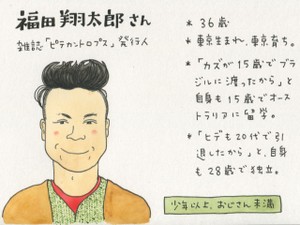 福田翔太郎さん
雑誌「ピテカントロプス」発行人
* 36歳
* 東京生まれ、東京育ち。
* 「カズが15歳でブラ
ジルに渡ったから」と
自身も15歳でオース
トラリアに留学。
* 「ヒデも20代で引
退したから」と、自身
も28歳で独立。
少年以上、おじさん未満